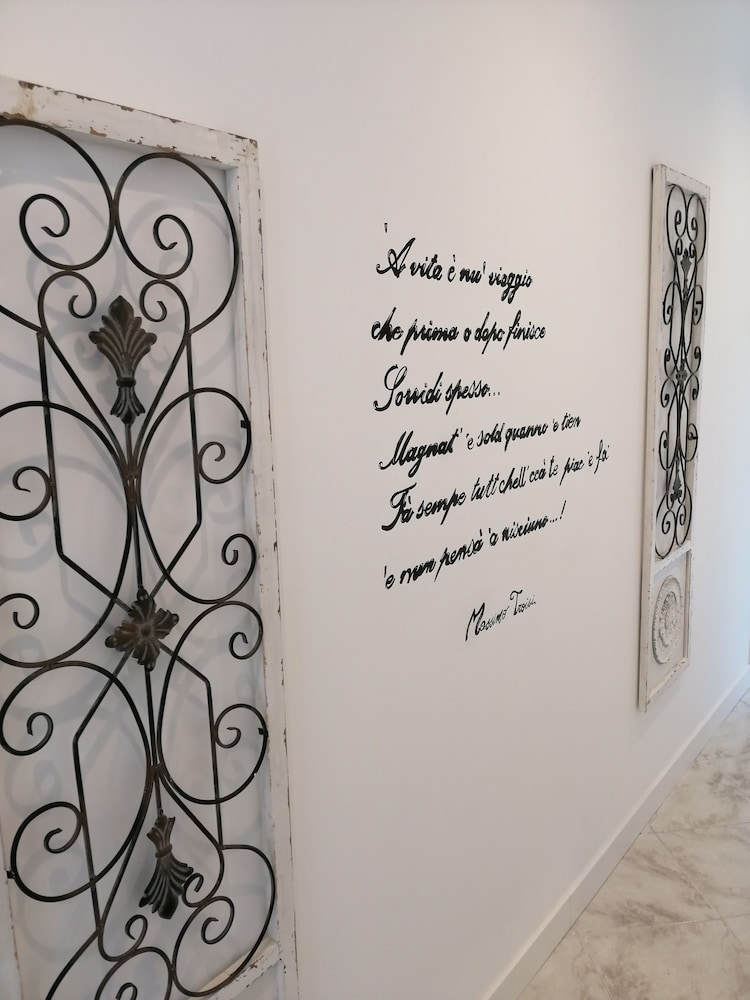 'A vita è nu' viaggio
che prima o dopo finisce
Sorridi spesso...
Magnat' 'e sold quanno 'e tien
Fà sempe tutt chell ccà te piac 'e fa'
'e nun pensà 'a nisciuno...!
Massimo Troisi